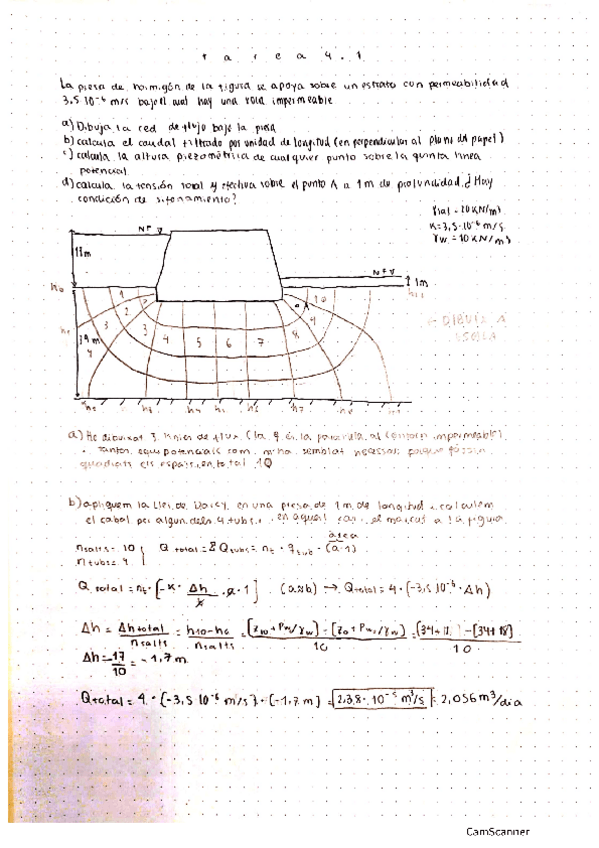 tarea 4.1
La presa de hormigón de la figura se apoya sobre un estrato con permeabilidad
3,5 10⁻⁶ m/s bajo el cual hay una roca impermeable
a) Dibuja la red de flujo bajo la presa
b) calcula el caudal filtrado por unidad de longitud (en perpendicular al plano del papel)
c) calcula la altura piezométrica de cualquier punto sobre la quinta linea
potencial.
d) calcula la tensión total y efectiva sobre el punto A a 1m de profundidad. ¿Hay
condición de sifonamiento?
γsat = 20 KN/m³
K = 3,5·10⁻⁶ m/s
γw = 10 KN/m³
NF
NF
1m
h0
1
2
3
3
4
4
5
6
7
8
9
10
A
← DIBUIX A
ESCALA
h3
h4
h5
h6
h7
a) He dibuixat 3 linies de flux (la 4 és la paral·lela al contorn impermeable)
quadrats els espais, en total 10
b) apliquem la Llei de Darcy en una presa de 1m de longitud i calculem
el cabal per algun dels 4 tubs,
nsalts = 10
ntubs = 4
Q total = ΣQtubs = nt · qtub · (a·1)
àrea
Q total = nt · [-K · Δh/b · a · 1] (a≈b) → Qtotal = 4 · (-3,5 10⁻⁶ · Δh)
Δh = Δhtotal/nsalts = h10-h0/nsalts = [z10 + Pw/γw] - [z0 + Pw/γw]/10 = - [34+18]/10
Δh = -17/10 = -1,7 m
Qtotal = 4 · (-3,5 10⁻⁶ m/s) · (-1,7 m) = 2,38 · 10⁻⁵ m³/s = 2,056 m³/dia
CamScanner